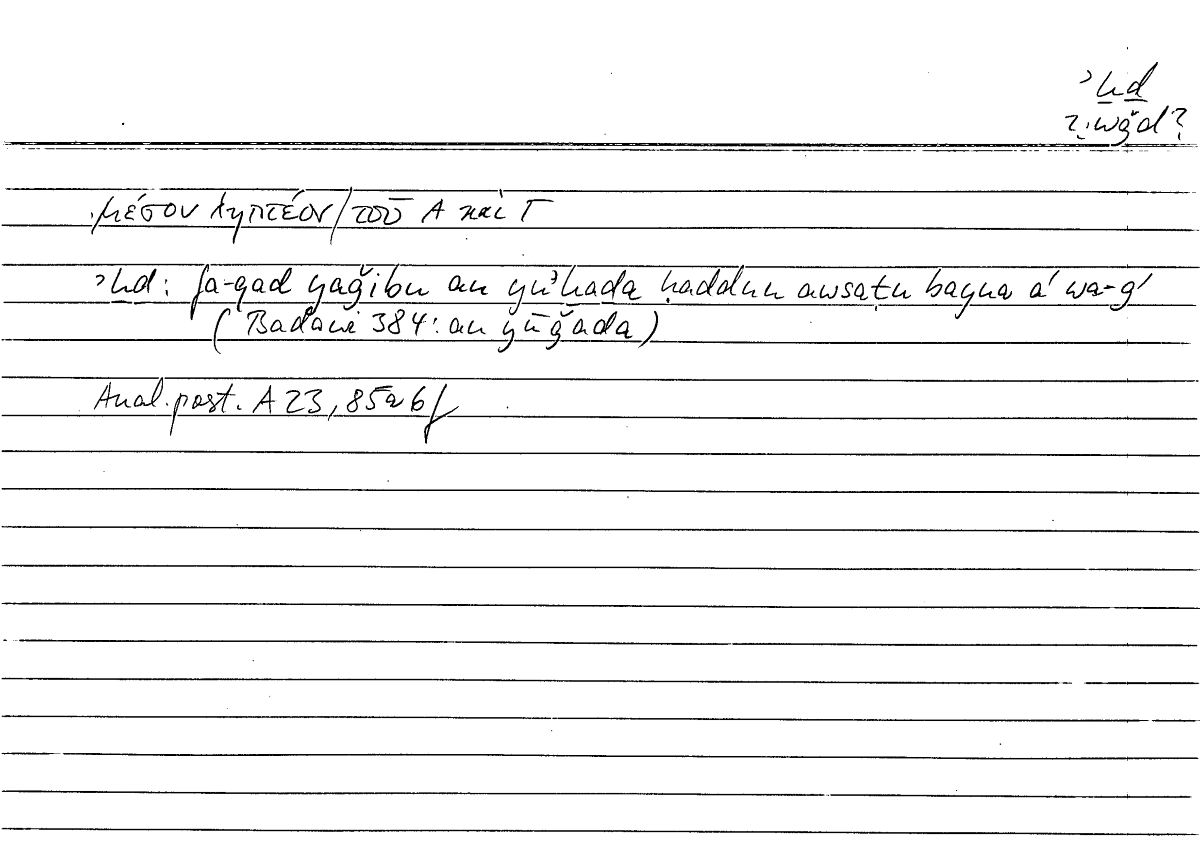 ʾḫḏ
?: wǧd?
μέσον ληπτέον / τοῦ Α καὶ Γ
ʾḫḏ: fa-qad yaǧibu an yuʾḫaḏa ḥaddun awsaṭu bayna a' wa-ǧ'
(Badawi 384: an yūǧada)
Anal. post. A 23, 85a6f